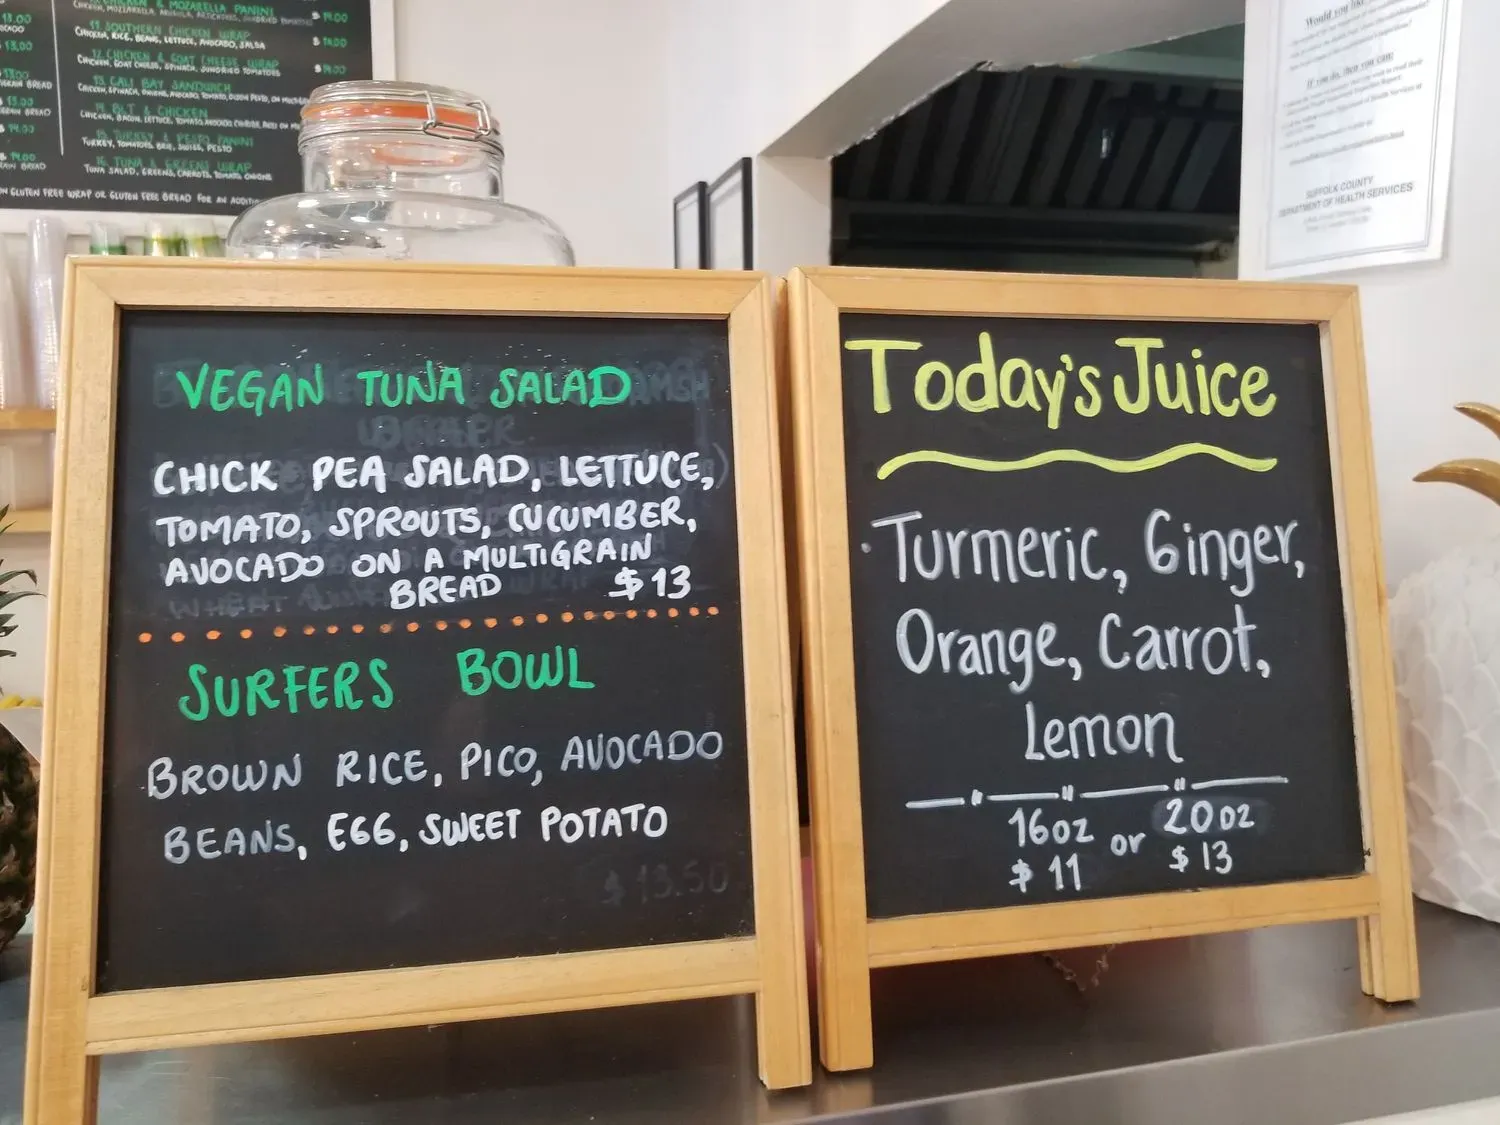 $13.00
$13.00
$13.00
BREAD
$13.00
BREAD
$14.00
$14.00
BREAD
CHICKEN & MOZARELLA PANINI $14.00
CHICKEN, MOZZARELLA, ARUGULA, ARTICHOKES, SUNDRIED TOMATOES
11. SOUTHERN CHICKEN WRAP $14.00
CHICKEN, RICE, BEANS, LETTUCE, AVOCADO, SALSA
12. CHICKEN & GOAT CHEESE WRAP $14.00
CHICKEN, GOAT CHEESE, SPINACH, SUNDRIED TOMATOES
13. CALI BAY SANDWICH
CHICKEN, SPINACH, ONIONS, AVOCADO, TOMATO, PESTO, ON
14. BLT & CHICKEN
CHICKEN, BACON, LETTUCE, TOMATO, AVOCADO
15. TURKEY & PESTO PANINI
TURKEY, TOMATOES, BRIE, PESTO
16. TUNA & GREENS WRAP
TUNA SALAD, GREENS, CARROTS, TOMATO, ONIONS
GLUTEN FREE WRAP OR GLUTEN FREE BREAD FOR AN
Would you like
If you do, then you can:
SUFFOLK COUNTY
DEPARTMENT OF HEALTH SERVICES
VEGAN TUNA SALAD
CHICK PEA SALAD, LETTUCE,
TOMATO, SPROUTS, CUCUMBER,
AVOCADO ON A MULTIGRAIN
BREAD $13
SURFERS BOWL
BROWN RICE, PICO, AVOCADO
BEANS, EGG, SWEET POTATO
$13.50
Today's Juice
Turmeric, Ginger,
Orange, Carrot,
Lemon
16oz or 20oz
$11 $13